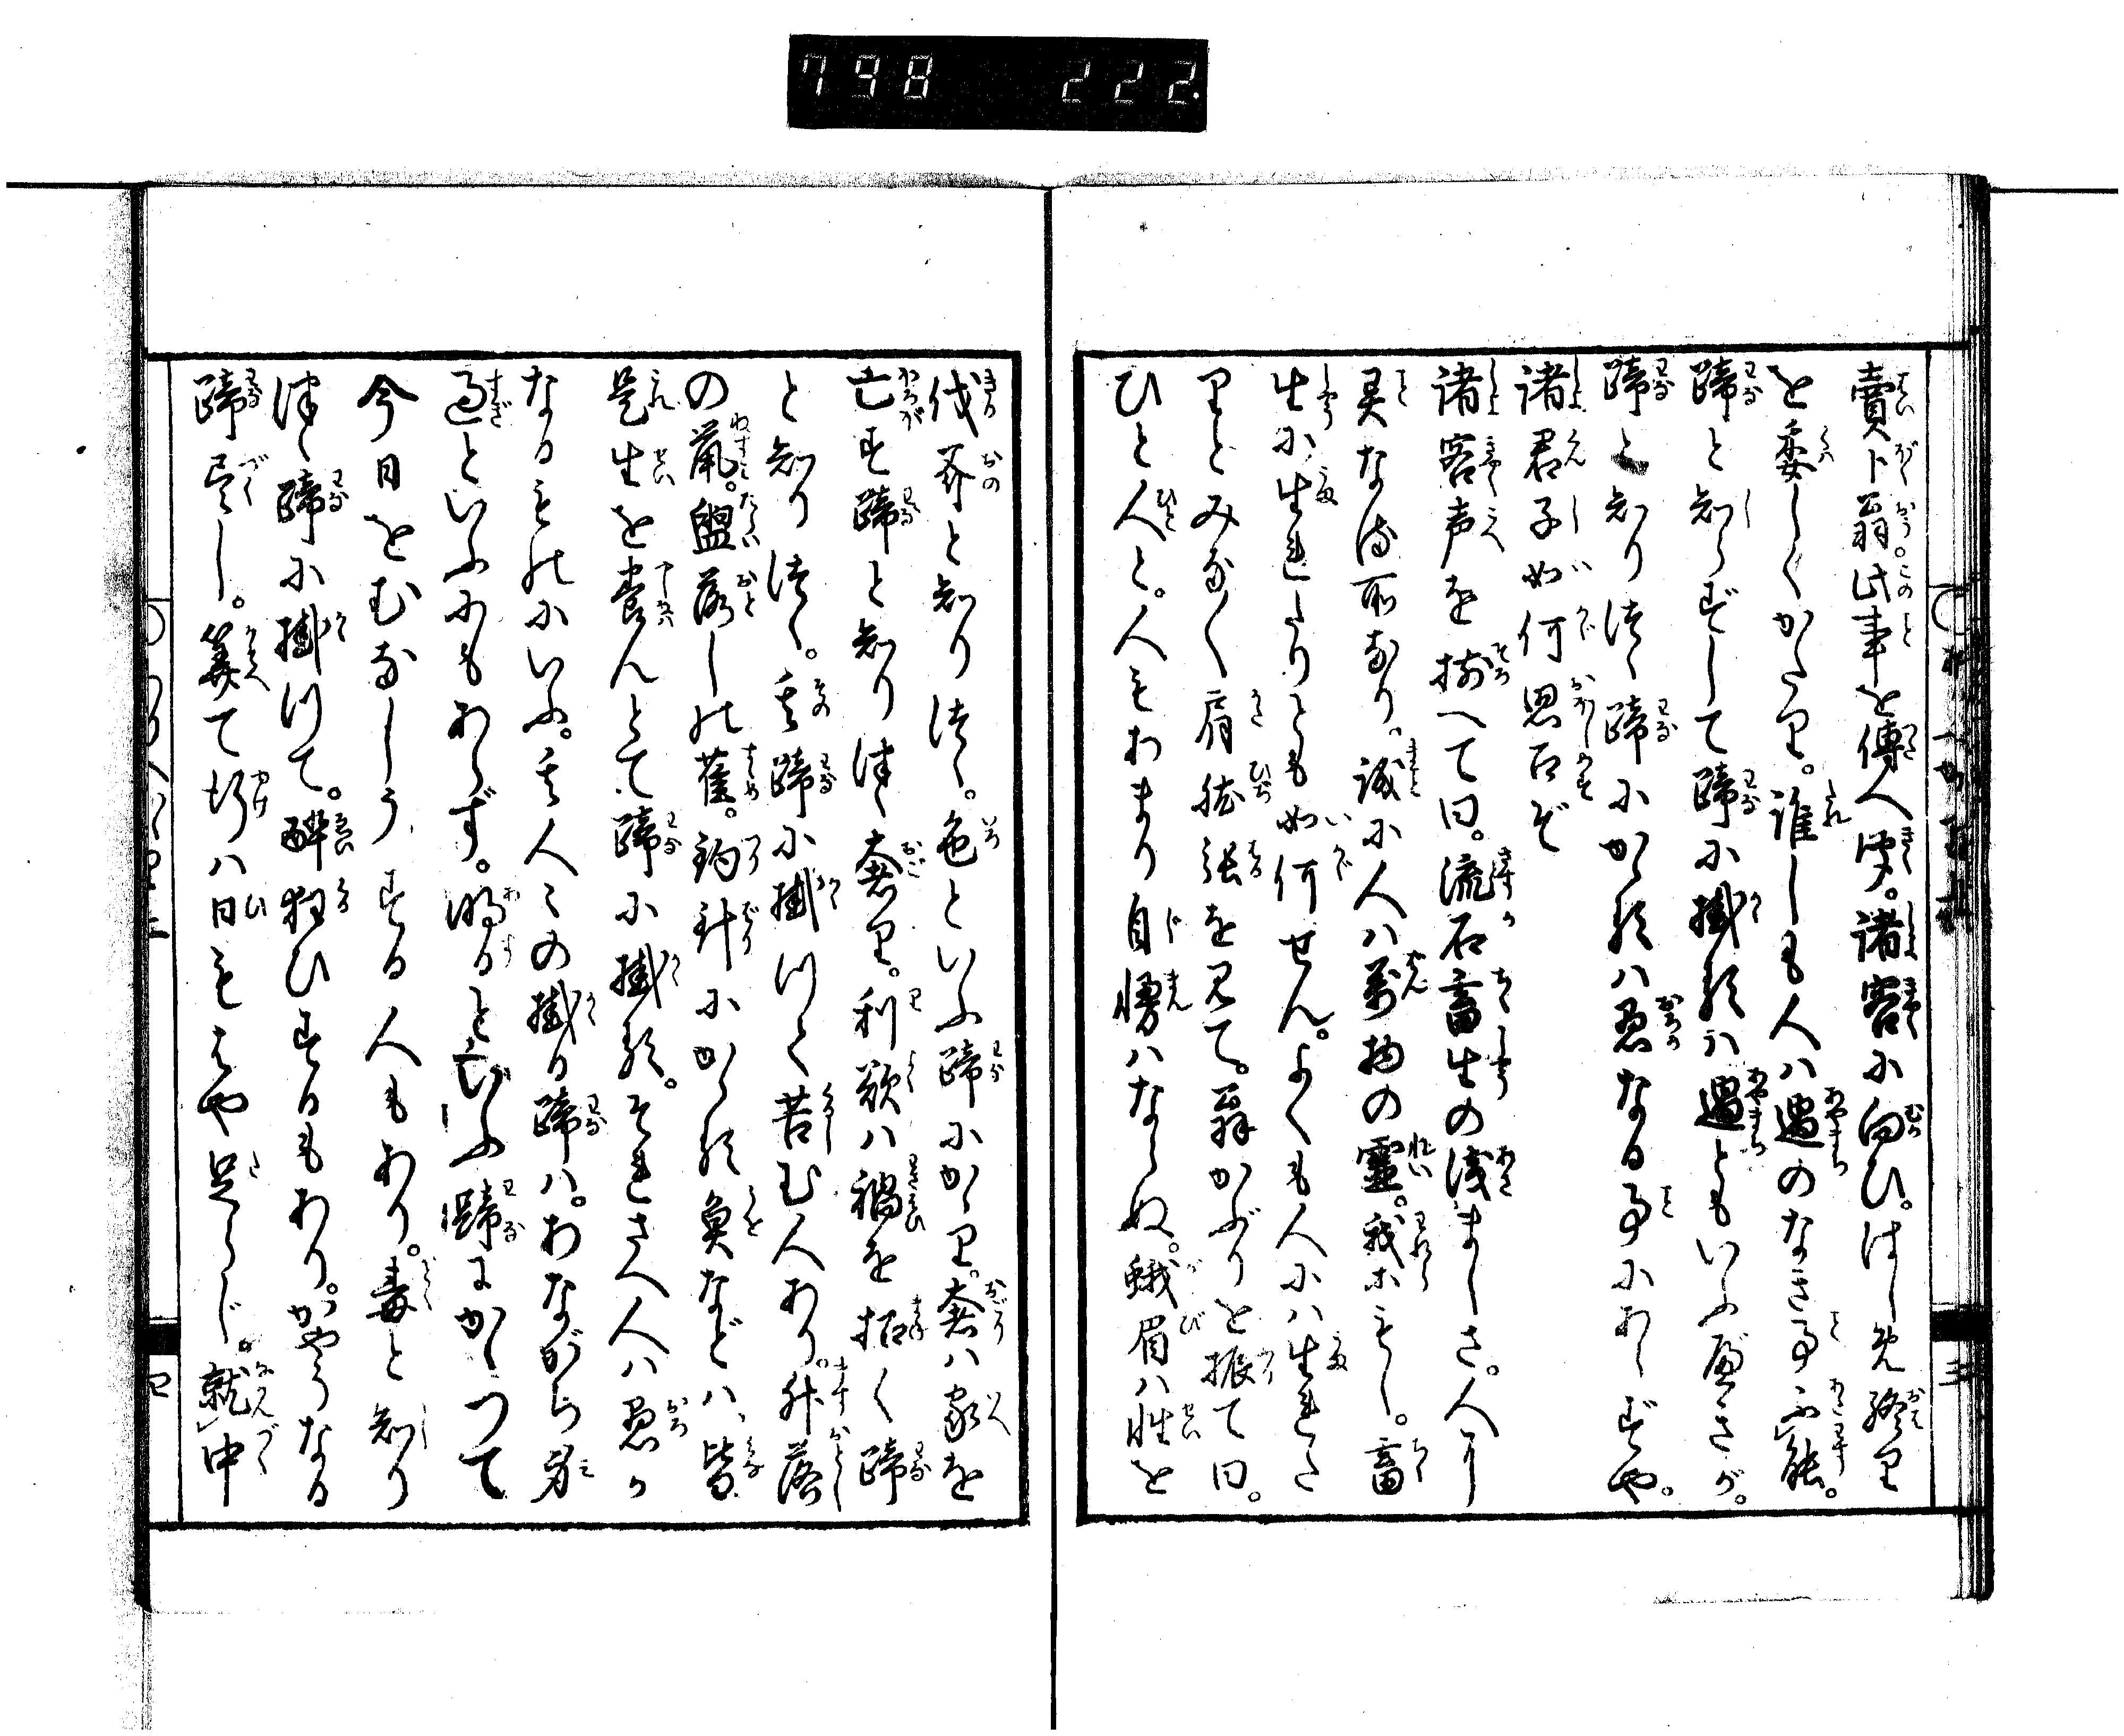 798 222
賣卜翁此事を傳へ聞。諸客に向ひ。はじめ終り
を委しくかたり。誰しも人ハ過のなき事不能。
蹄と知らずして蹄に掛るハ過ともいふべきが。
蹄と知りつゝ蹄にかゝるハ愚なる事にあらずや。
諸君子如何思召ぞ
諸客声を揃へて曰。流石畜生の浅ましさ。人に
異なる所なり。誠に人ハ萬物の靈。我等もし。畜
生に生れたりとも如何せん。よくも人にハ生れた
りとみなく肩肱張を見て。翁かぶりを振て曰。
ひと人と。人もあまり自慢ハならぬ。蛾眉ハ性を
伐斧と知りつゝ。色といふ蹄にかゝり。奢ハ家を
亡す蹄と知りつゝ奢り。利欲ハ禍を招く蹄
と知りつゝ。其蹄に掛りて苦む人あり。舛落
の鼠。盥落しの雀。釣針にかゝる魚などハ、皆
是生を養んとて蹄に掛る。それさへ人ハ愚か
なるものにいふ。其人々の掛る蹄ハ。あながち身
過といふにもあらず。明ると知ふ蹄にかゝつて
今日をむなしう する人もあり。毒と知り
つゝ蹄に掛りて。酔狂ひするもあり。かやうなる
蹄尽し。算て行ハ日もはや足らじ。就中